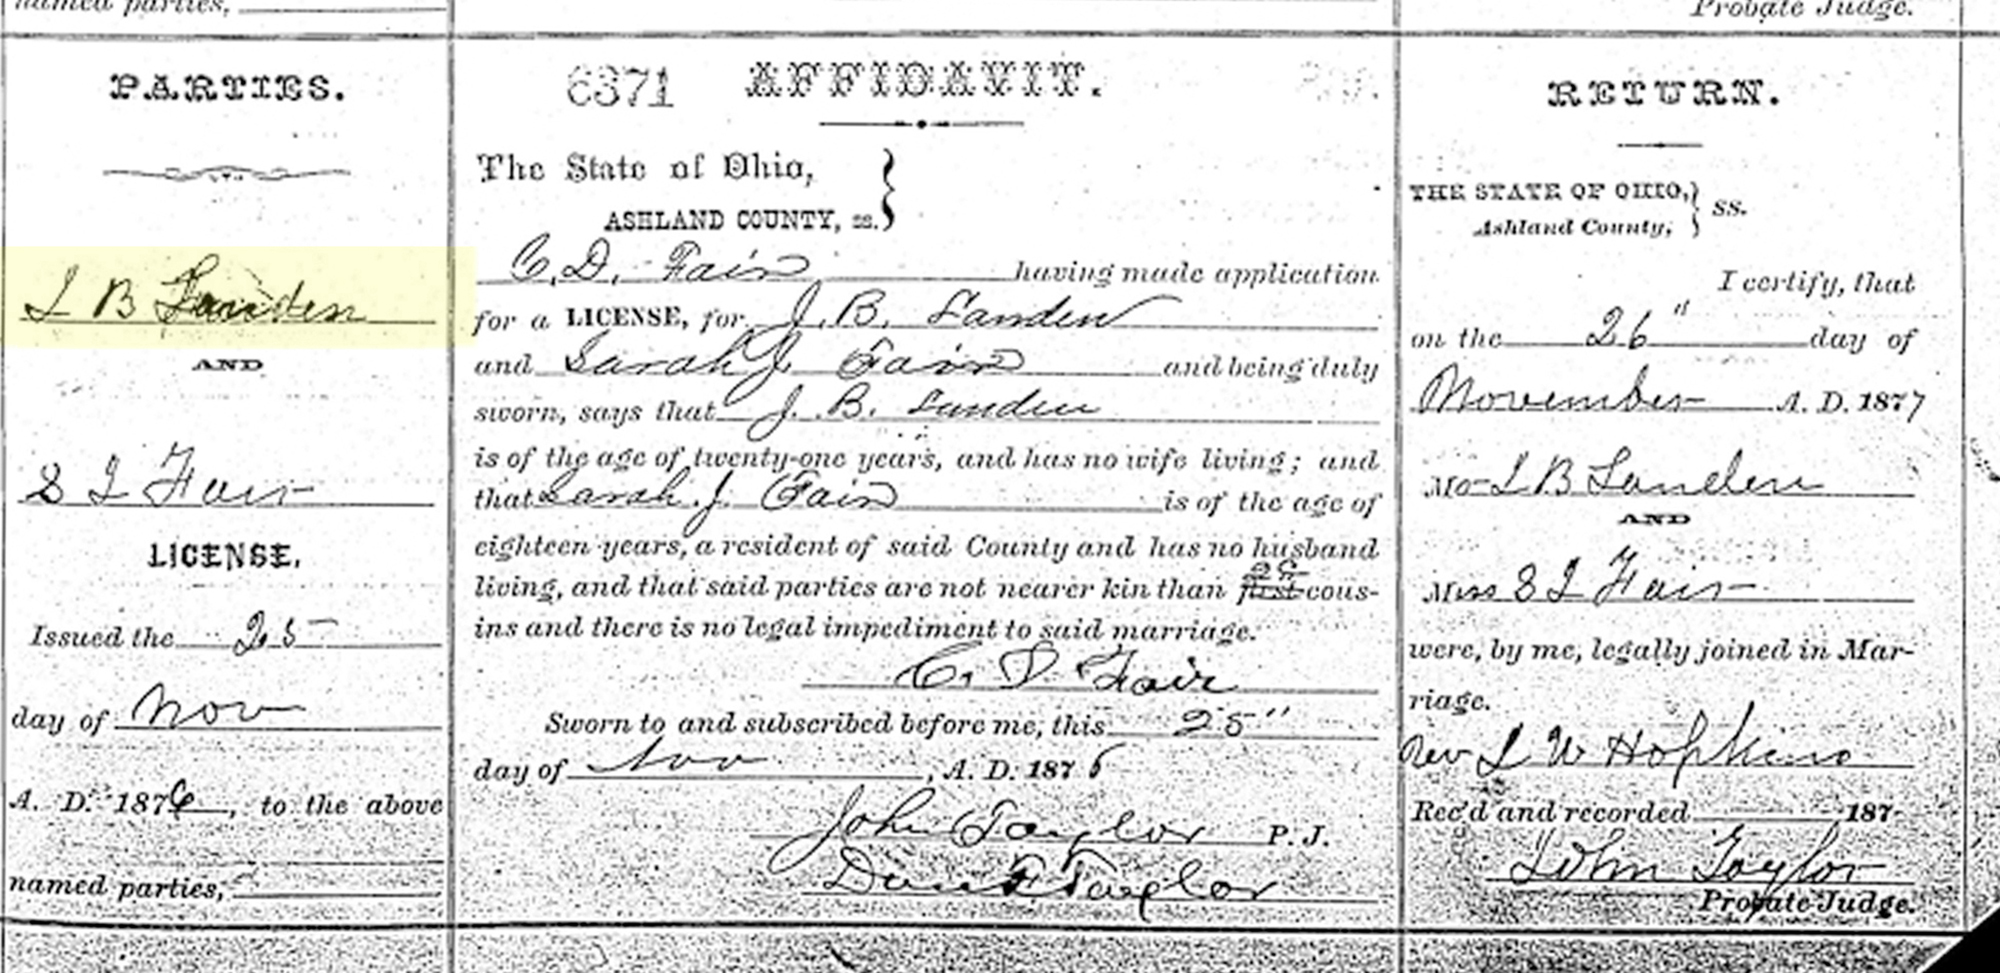 named parties,
Probate Judge.
PARTIES.
J B Landen
AND
S J Fair
LICENSE.
Issued the 25
day of Nov
A. D. 1876, to the above
named parties,
6371 AFFIDAVIT.
The State of Ohio,
ASHLAND COUNTY, ss.
C. D. Fair having made application
for a LICENSE, for J. B. Landen
and Sarah J Fair and being duly
sworn, says that J. B. Landen
is of the age of twenty-one years, and has no wife living; and
that Sarah J. Fair is of the age of
eighteen years, a resident of said County and has no husband
living, and that said parties are not nearer kin than first cous-
ins and there is no legal impediment to said marriage.
C. D. Fair
Sworn to and subscribed before me, this 25"
day of Nov, A. D. 1876
John Taylor P. J.
Taylor
RETURN.
THE STATE OF OHIO, ss.
Ashland County,
I certify, that
on the 26" day of
November A. D. 1877
Mr J B Landen
AND
Miss S J Fair
were, by me, legally joined in Mar-
riage.
Rev J W Hopkins
Rec'd and recorded 187
John Taylor
Probate Judge.